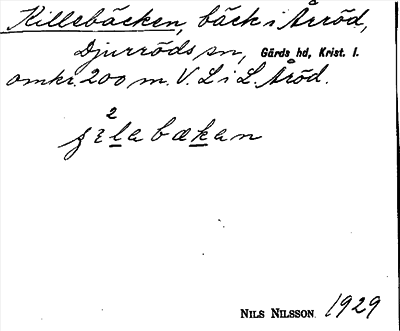 Killebäcken, bäck i Årröd,
Djurröds sn, Gärds hd, Krist. l.
omkr. 200 m. V. L i L. Åröd.
NILS NILSSON. 1929